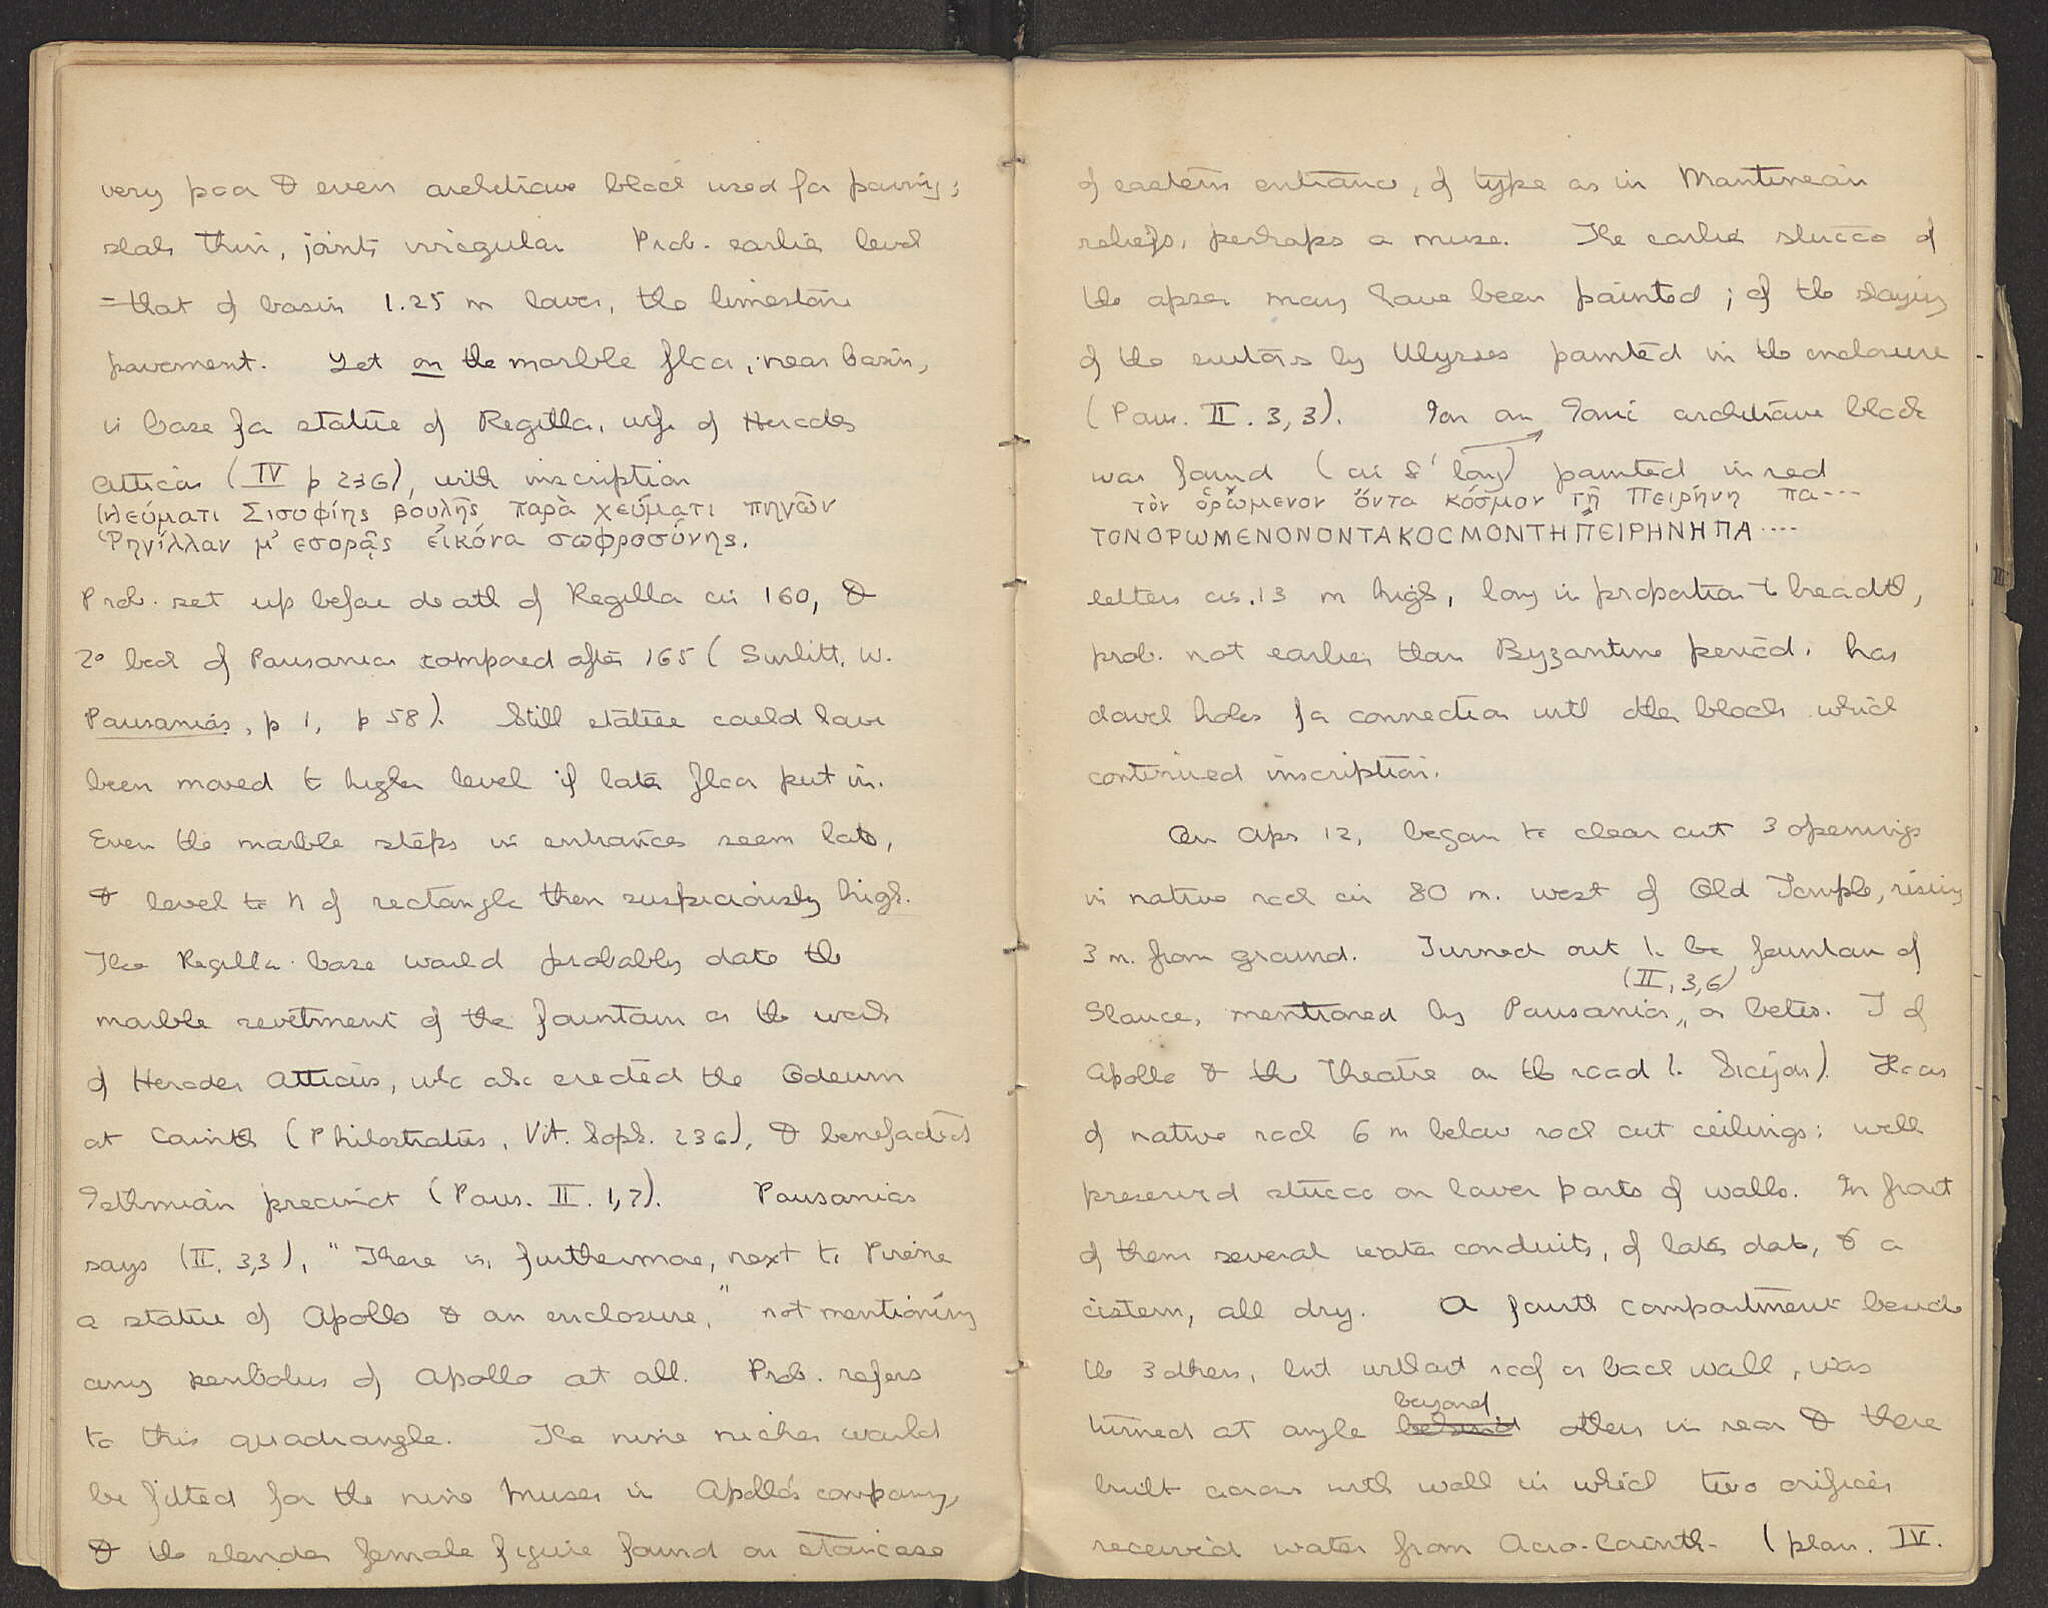 very poor & even architrave block used for paving;
slabs thin, joints irregular Prob. earlier level
= that of basin 1.25 m lower, the limestone
pavement. Yet on the marble floor, near basin,
is base for statue of Regilla, wife of Herodes
Atticus (IV p 236), with inscription
[Ν]εύματι Σισυφίης βουλῆς παρὰ χεύματι πηγῶν
Ῥηγίλλαν μ' εσορᾷς εἰκόνα σωφροσύνης.
Prob. set up before death of Regilla ca 160, &
2° book of Pausanias composed after 165 (Gurlitt, W.
Pausanias, p 1, p 58). Still statue could have
been moved to higher level if later floor put in.
Even the marble steps in entrances seem late,
& level to N of rectangle then suspiciously high.
The Regilla base would probably date the
marble revetment of the fountain as the work
of Herodes Atticus, who also erected the Odeum
at Corinth (Philostratus, Vit. Soph. 236), & benefacted
Isthmian precinct (Paus. II. 1,7). Pausanias
says (II. 3,3), "There is, furthermore, next to Pirene
a statue of Apollo & an enclosure," not mentioning
any peribolus of Apollo at all. Prob. refers
to this quadrangle. The nine niches would
be fitted for the nine Muses in Apollo's company,
& the slender female figure found on staircase
of eastern entrance, of type as in Mantinean
reliefs, perhaps a muse. The earlier stucco of
the apses may have been painted; of the slaying
of the suitors by Ulysses painted in the enclosure
(Paus. II. 3,3). For an Ionic architrave block
was found (ca 8' long) painted in red
τὸν ὁρώμενον ὄντα κόσμον τῇ Πειρήνῃ πα---
ΤΟΝΟΡΩΜΕΝΟΝΟΝΤΑΚΟCΜΟΝΤΗΠΕΙΡΗΝΗΠΑ....
letters ca .13 m high, long in proportion to breadth,
prob. not earlier than Byzantine period. has
dowel holes for connection with other blocks which
continued inscription.
On Apr 12, began to clear out 3 openings
in native rock ca 80 m. west of Old Temple, rising
3 m. from ground. Turned out to be fountain of
(II, 3,6)
Glauce, mentioned by Pausanias, as betw. T of
Apollo & the Theatre on the road to Sicyon). Floors
of native rock 6 m below rock cut ceilings; well
preserved stucco on lower parts of walls. In front
of them several water conduits, of later date, & a
cistern, all dry. A fourth compartment beside
the 3 others, but without roof or back wall, was
beyond
turned at angle behind others in rear & there
built across with wall in which two orifices
received water from Acro-Corinth- (plan. IV.